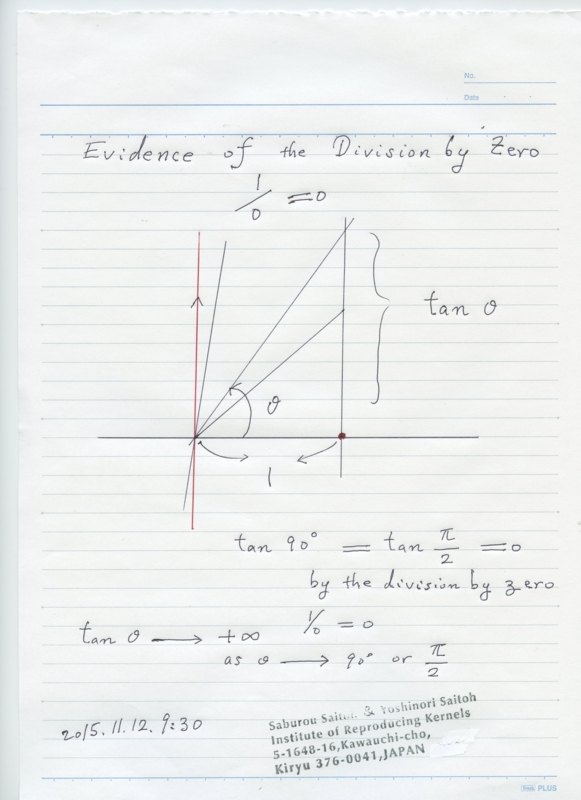 No.
Date
Evidence of the Division by Zero
1/0 = 0
tan θ
θ
1
tan 90° = tan π/2 = 0
by the division by zero
tan θ → +∞ 1/0 = 0
as θ → 90° or π/2
2015.11.12. 9:30
Saburou Saitoh & Yoshinori Saitoh
Institute of Reproducing Kernels
5-1648-16,Kawauchi-cho,
Kiryu 376-0041,JAPAN
PLUS